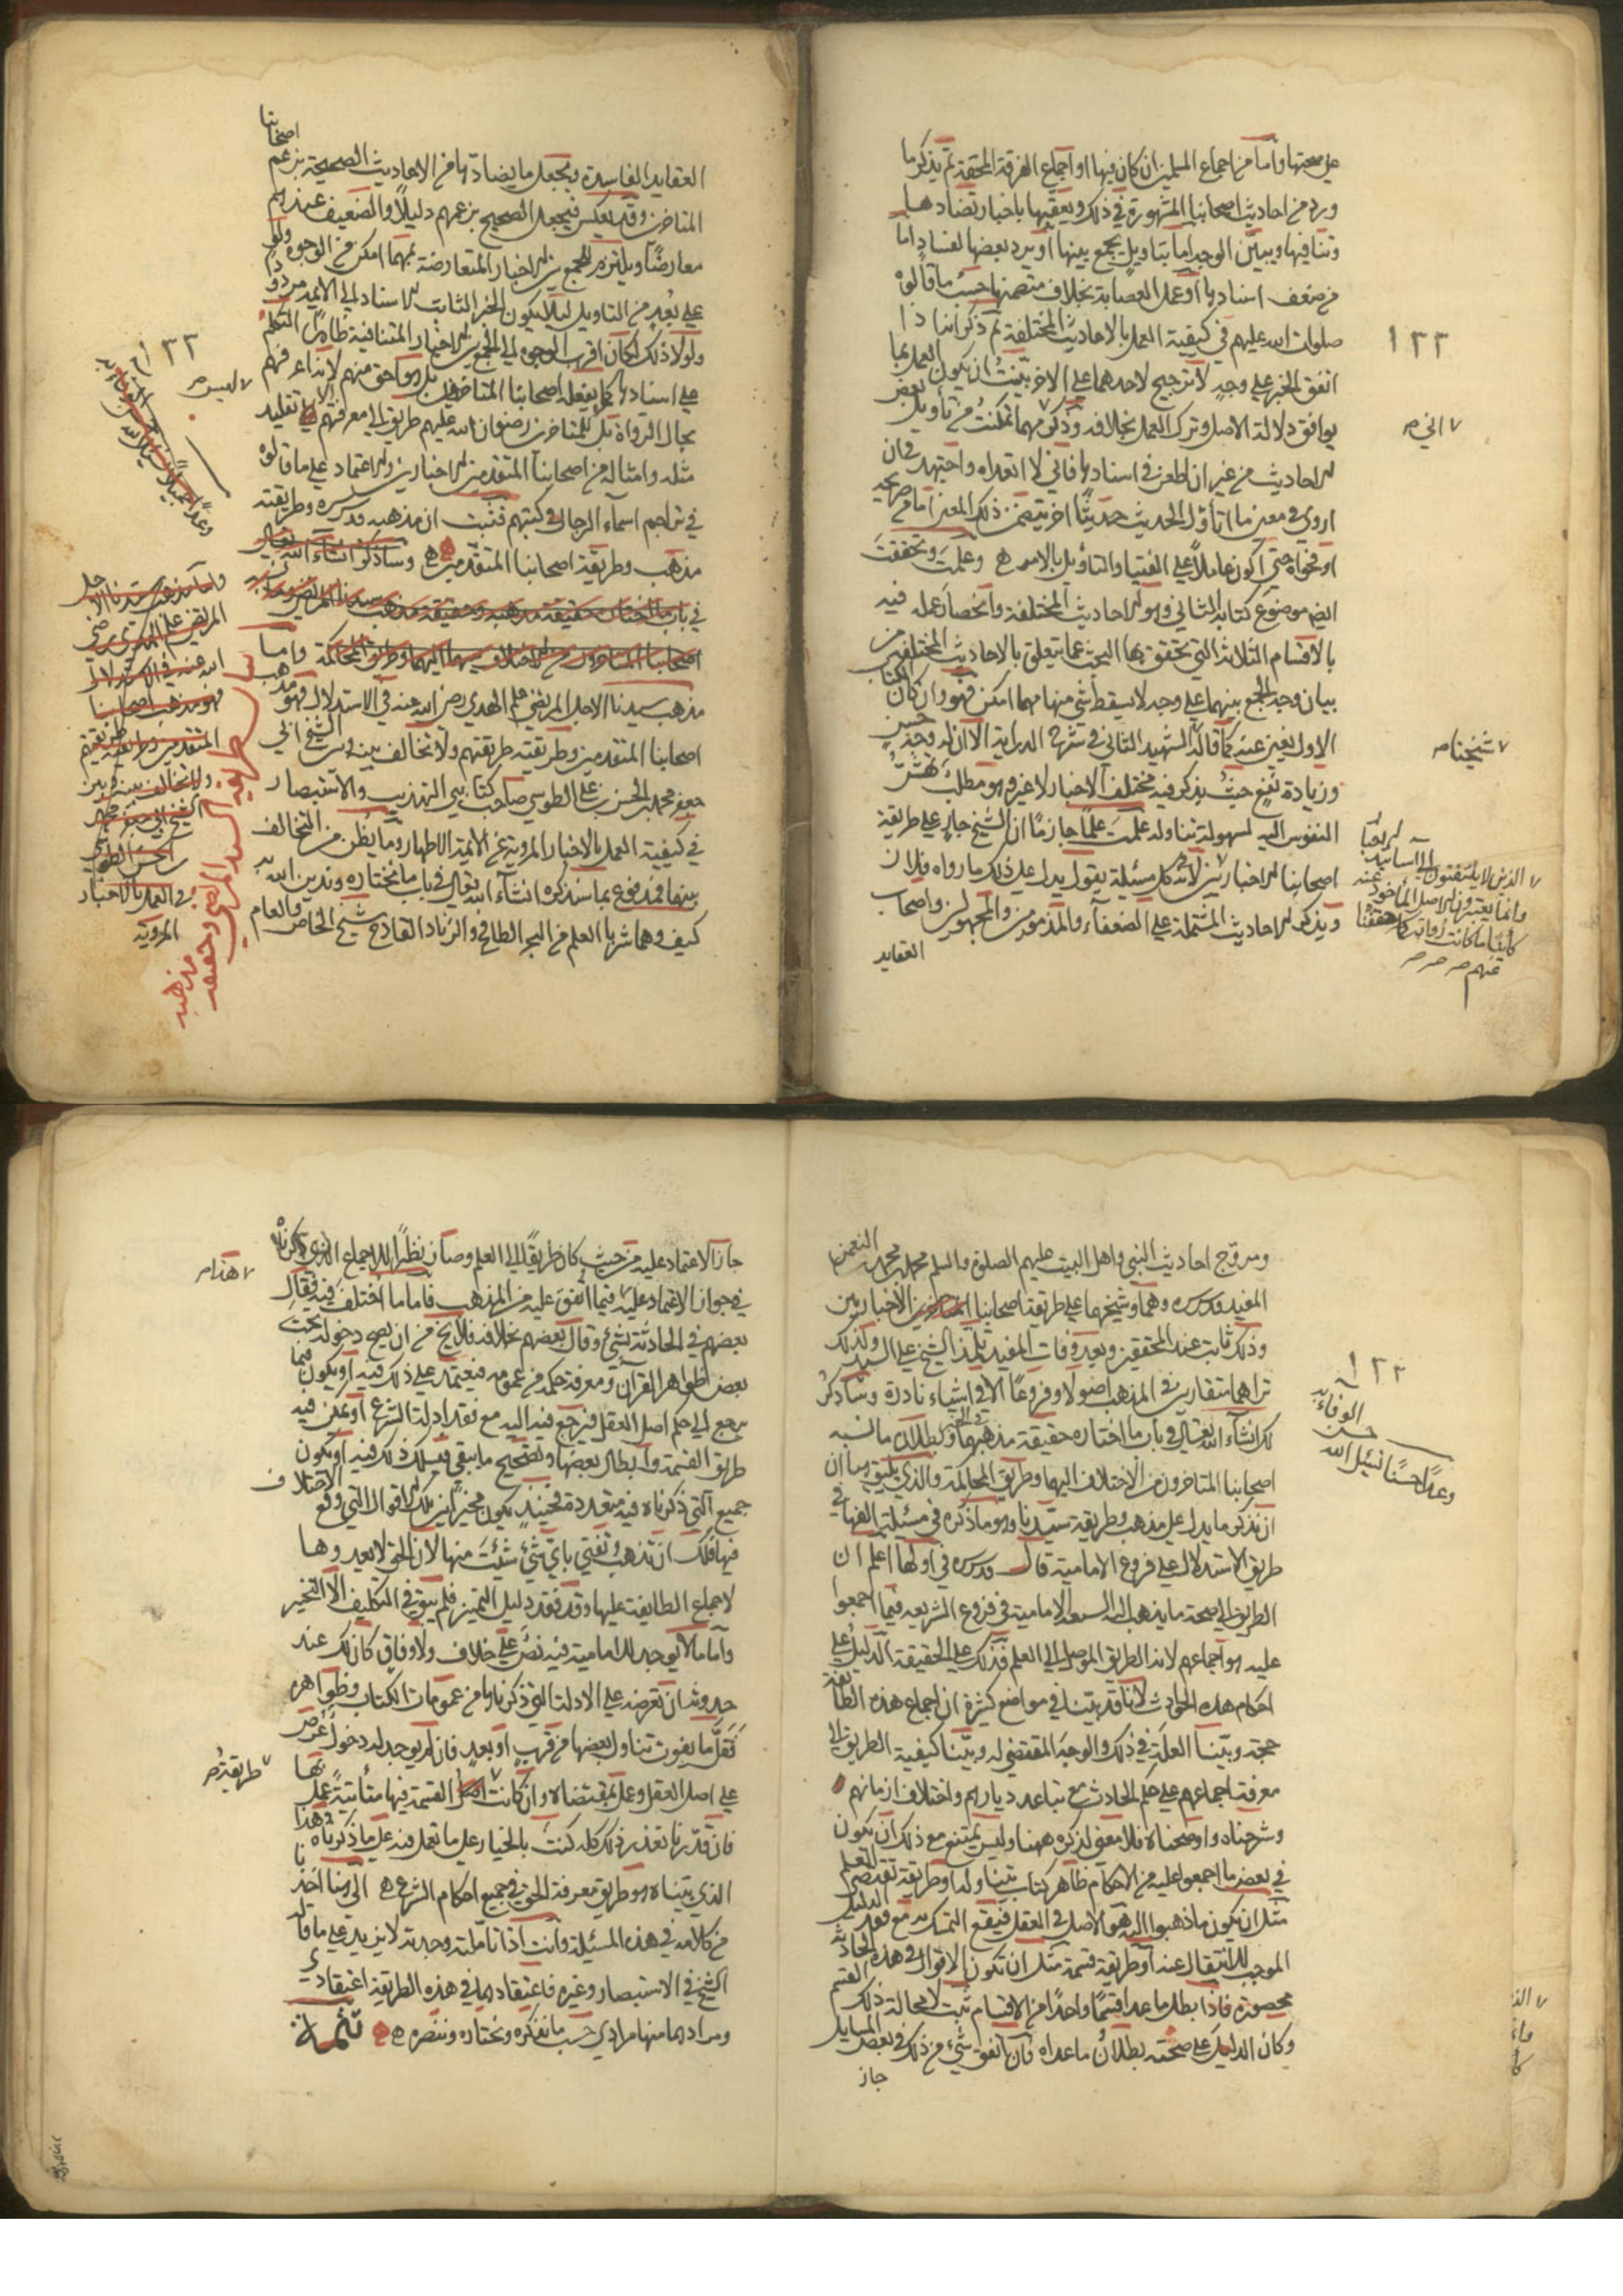 على صحتها واما من اجماع المسلمين ان كان فيها او اجماع الفرقة المحقة ثم يذكر ما
ورد من احاديث اصحابنا المشهورة في ذلك ويعقبها باخبار تضادها
وتنافيها ويبين الوجه اما بتاويل يجمع بينها او يرد بعضها لفساد اما
من ضعف اسنادها او عمل العصابة بخلاف متضمنها حسب ما قالوه
صلوات الله عليهم في كيفية العمل بالاحاديث المختلفة ثم ذكر انه اذا
١٢٢
اتفق الخبر على وجه لا ترجيح لاحدهما على الاخر بينت ان يكون العمل بما
يوافق دلالة الاصل وترك العمل بخلافه وذكر مهما تمكنت من تأويل بعض
الاحاديث من غير ان اطعن في اسنادها فاني لا اتعداه واجتهد في ان
اروي في معنى ما اتأول الحديث حديثا اخر يتضمن ذلك المعنى اما من صريحه
او فحواه حتى اكون عاملا على الفتيا والتاويل بالاثر وعلمت وتحققت
ايض موضوع كتابه الثاني وهو الاحاديث المختلفة وانحصار عمله فيه
بالاقسام الثلاثة التي تحقق بها البحث عما يتعلق بالاحاديث المختلفة من
بيان وجه الجمع بينهما على وجه لا يسقط شئ منها مهما امكن فهو وان كان الكتاب
الاول يغني عنه كما قاله الشهيد الثاني في شرح الدراية الا ان له وجه حسن
شيخنا صح
وزيادة نفع حيث يذكر فيه مختلف الاخبار لا غير وهو مطلب تهش
النفوس اليه لسهولة تناوله علمت علما جازما ان الشيخ جار على طريقة
اصحابنا الاخباريين لانه في كل مسئلة يقول يدل على ذلك ما رواه فلان
ويذكر الاحاديث المشتملة على الضعفاء والمذمومين والمجهولين واصحاب
الذين لا يلتفتون الى اسانيد
وانما يعتبرون الاصل المأخوذ عنه
كائنا ما كانت رواته كما حققنا
عنهم صح صح صح
العقايد
العقايد الفاسدة ويجعل ما يضادها من الاحاديث الصحيحة بزعم اصحابنا
المتاخرين وقد يعكس فيجعل الصحيح بزعمهم دليلا والضعيف عندهم
معارضا ويلتزم الجمع بين الاخبار المتعارضة بمهما امكن من الوجوه ولو
على بعد من التاويل لئلا يكون الخبر الثابت الاسناد الى الائمة مردودا
ولولا ذلك لكان اقرب الوجوه الى الجمع بين الاخبار المتنافية ظاهرا التكلم
على اسنادها كما يفعله اصحابنا المتاخرين بل هو احق منهم لانه اعرفهم
بحال الرواة بل ليس للمتاخرين رضوان الله عليهم طريق الى معرفتهم الا تقليد
مثله وامثاله من اصحابنا المتقدمين الاخبارين والاعتماد على ما قالوه
في تراجم اسماء الرجال في كتبهم فثبت ان مذهبه قدس سره وطريقته
مذهب وطريقة اصحابنا المتقدمين وساذكر انشاء الله تعالى
في باب ما اختاره حقيقة مذهبه وحقيقة مذهب سيدنا المرتضى
اصحابنا المتاخرون من الاختلاف اليهما وطريق المحاكمة واما
مذهب سيدنا الاجل المرتضى علم الهدى رضي الله عنه في الاستدلال فهو مذهب
اصحابنا المتقدمين وطريقته طريقتهم ولا تخالف بينه وبين الشيخ ابي
جعفر محمد بن الحسن بن علي الطوسي صاحب كتابي التهذيب والاستبصار
في كيفية العمل بالاخبار المروية عن الائمة الاطهار وما يظن من التخالف
بينهما فمدفوع بما سنذكره انشاء الله تعالى في باب ما نختاره وندين الله به
كيف وهما شربا العلم من البحر الطافح والزناد القادح شيخ الخاص والعام
١٢٢
واما مذهب سيدنا الاجل
المرتضى علم الهدى رضي
الله عنه في الاستدلال
فهو مذهب اصحابنا
المتقدمين وطريقته طريقتهم
ولا تخالف بينه وبين
الشيخ ابي جعفر محمد
بن الحسن الطوسي
في العمل بالاخبار
المروية
ومروج احاديث النبي واهل البيت عليهم الصلوة والسلم محمد بن محمد بن النعمن
المفيد قدس سره وهما وشيخهما على طريقة اصحابنا الاخباريين
وذلك ثابت عند المحققين وبعد وفات المفيد تلمذ الشيخ على السيد ولذلك
تراهما متقاربين في المذهب اصولا وفروعا الا في اشياء نادرة وساذكر
١٢٢
لك انشاء الله تعالى في باب ما اختاره حقيقة مذهبهما وبطلان ما نسبه
اصحابنا المتاخرون من الاختلاف اليهما وطريق المحاكمة والذي يليق هنا ان
ان نذكر ما يدل على مذهب وطريقة سيدنا وهو ما ذكره في مسئلة الفها في
طريق الاستدلال على فروع الامامية قال قدس سره في اولها اعلم ان
الطريق الى صحة ما يذهب اليه الشيعة الامامية في فروع الشريعة فيما اجمعوا
عليه هو اجماعهم لانه الطريق الموصل الى العلم فذلك على الحقيقة الدليل على
احكام هذه الحوادث لانا قد بينا في مواضع كثيرة ان اجماع هذه الطائفة
حجة وبينا العلة في ذلك والوجه المقتضي له وبينا كيفية الطريق الى
معرفة اجماعهم على حكم الحادث مع تباعد ديارهم واختلاف ازمانهم
وشرحناه واوضحناه فلا معنى لذكره ههنا وليس يمتنع مع ذلك ان يكون
في بعض ما اجمعوا عليه من الاحكام ظاهر كتاب يتناوله او طريقة تقتضي العلم
مثل ان يكون ما ذهبوا اليه هو الاصل في العقل فيقع التمسك به مع فقد الدليل
الموجب للانتقال عنه او طريقة قسمة مثل ان تكون الاقوال في هذه الحادثة
محصورة فاذا بطل ما عدا قسما واحدا من الاقسام ثبت لا محالة ذلك القسم
وكان الدليل على صحته بطلان ما عداه فان اتفق شئ من ذلك في بعض المسايل
جاز
جاز الاعتماد عليه من حيث كان طريقا الى العلم وصار نظيرا للاجماع الذي ذكرناه
في جواز الاعتماد عليه فيما اتفق عليه من المذهب فاما ما اختلف فيه فقال
هذا صح
بعضهم في الحادثة بشئ وقال بعضهم بخلافه فلا يخ من ان يصح دخوله تحت
بعض ظواهر القرآن ومعرفة حكمه من عمومه فيعتمد على ذلك فيه او يكون فيما
يرجع الى حكم اصل العقل فيرجع فيه اليه مع فقد ادلة الشرع او يمكن فيه
طريق القسمة وابطال بعضها وتصحيح ما يبقى فيسلك ذلك فيه او يكون
جميع التي ذكرناه فيه متعددة فحينئذ يكون مخيرا بين تلك الاقوال التي وقع الاختلاف
فيها فلك ان تذهب وتفتي باي شئ شئت منها لان الحق لا يعدوها
لاجماع الطايفة عليها وقد فقد دليل التمييز فلم يبق في التكليف الا التخير
واما ما لا يوجد للامامية فيه نص على خلاف ولا وفاق كان لك عند
حدوثه ان تعرضه على الادلة التي ذكرناها من عمومات الكتاب وظواهره
فقل ما يفوت تناول بعضها من قرب او بعد فان لم يوجد له دخول عرض
على اصل العقل وعمل بمقتضاه وان كانت القسمة فيها متأتية عمل بها
طريقة صح
فان قدرنا تعذر ذلك كله كنت بالخيار على ما تعمل فيه على ما ذكرناه فهذا
الذي بيناه هو طريق معرفة الحق في جميع احكام الشرع الى هنا اخذنا
من كلامه في هذه المسئلة وانت اذا تاملته وجدته لا يزيد على ما قاله
الشيخ في الاستبصار وغيره فاعتقادهما في هذه الطريقة اعتقادي
ومرادهما منها مرادي حسب ما نفكره ونختاره وننصره تتمة